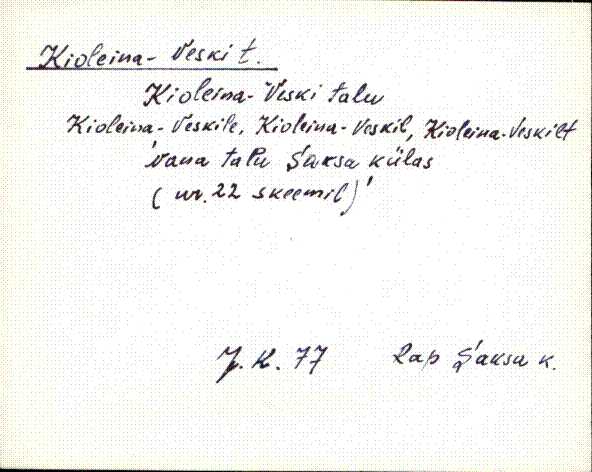 Kioleina-Veski t.
Kioleina-Veski talu
Kioleina-Veskile, Kioleina-Veskil, Kioleina-Veskilt
'vana talu Saksa külas
(nr. 22 skeemil)'
J. K. 77 Rap Saksa k.